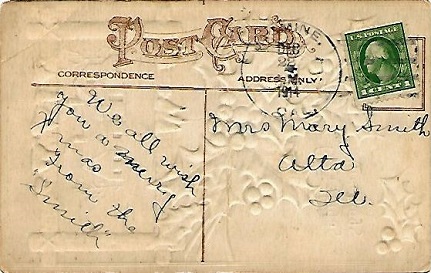 POST CARD
CORRESPONDENCE
ADDRESS ONLY
DEC
1914
U.S. POSTAGE
1 CENT 1
We all wish
you a merry
Xmas
From the
"Smith"
Mrs Mary Smith
Alta
Ill.